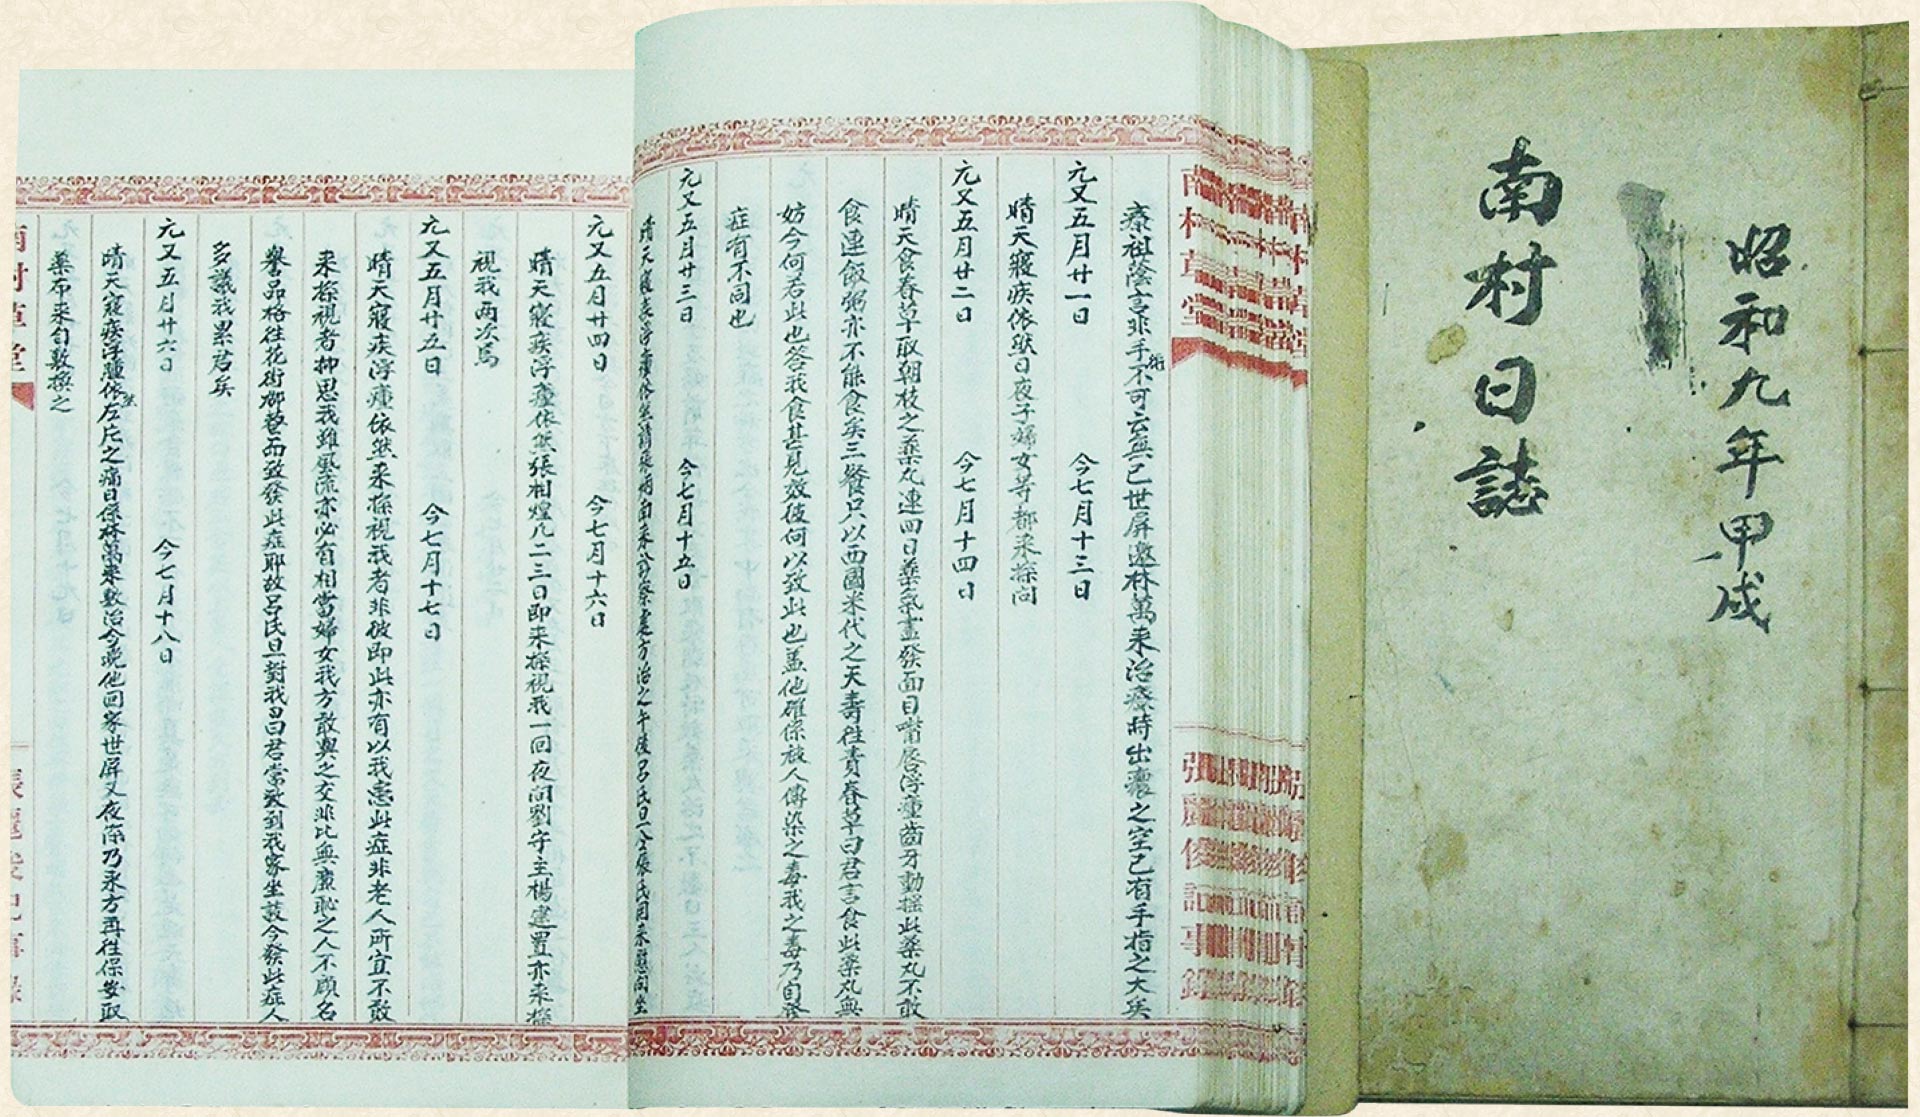 昭和九年甲戌
南村日誌
南村草堂
張麗俊記事錄
泰祖蔭言非手術不可云無已世屏邀林萬來治療時出膿之空已有手指之大矣
元又五月廿一日 今七月十三日
晴天寢疾依然日夜子婦女等都來探問
元又五月廿二日 今七月十四日
晴天食春草取朝枝之藥丸連四日藥氣盡發面目嘴唇浮瘇齒牙動搖此藥丸不敢
食連飯粥亦不能食矣三餐只以西國米代之天壽往責春草曰君言食此藥丸無
妨今何若此也答我食甚見效彼何以致此也盖他確係被人傳染之毒我之毒乃自發
症有不同也
元又五月廿三日 今七月十五日
晴天寢疾浮瘇依然請張炳南來診察處方治之午後呂氏旦仝張氏月來慰問坐
元又五月廿四日 今七月十六日
晴天寢疾浮瘇依然張相煌凡二三日即來探視我一回夜間劉守主楊建置亦來探
視我兩次焉
元又五月廿五日 今七月十七日
晴天寢疾浮瘇依然來探視我者非彼即此亦有以我患此症非老人所宜不敢
來探視者抑思我雖風流亦必有相當婦女我方敢與之交非比無廉恥之人不顧名
譽品格往花街柳巷而致發此症耶故呂氏旦對我曰君常致到我家坐談今發此症人
多議我累君矣
元又五月廿六日 今七月十八日
晴天寢疾浮腫依然左庀之痛日保林萬來敷治今晚他回家世屏又夜深乃求方再往保安取
藥布來自敷換之
南村草堂
張麗俊記事錄